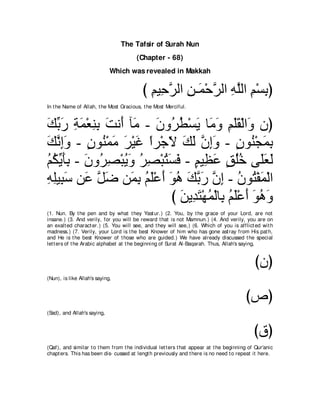 The Tafsir of Surah Nun
(Chapter - 68)
Which was revealed in Makkah
﴿ بِسْمِ اللَّهِ الرَّحْمَـنِ الرَّحِيمِ ﴾
﴿ن وَالْقَلَمِ وَمَا يَسْطُرُونَ - مَآ أَنتَ بِنِعْمَةِ رَبِّكَ
بِمَجْنُونٍ - وَإِنَّ لَكَ لأَجْراً غَيْرَ مَمْنُونٍ - وَإِنَّكَ
لَعَلَى خُلُقٍ عَظِيمٍ - فَسَتُبْصِرُ وَيُبْصِرُونَ - بِأَيِّكُمُ
الْمَفْتُونُ - إِنَّ رَبَّكَ هُوَ أَعْلَمُ بِمَن ضَلَّ عَن سَبِيلِهِ
وَهُوَ أَعْلَمُ بِالْمُهْتَدِينَ ﴾
In the Name of Allah, the Most Gracious, the Most Merciful.
(1. Nun. By the pen and by what they Yastur.) (2. You, by the grace of your Lord, are not
insane.) (3. And verily, for you will be reward that is not Mamnun.) (4. And verily, you are on
an exalted character.) (5. You will see, and they will see,) (6. Which of you is afflicted with
madness.) (7. Verily, your Lord is the best Knower of him who has gone astray from His path,
and He is the best Knower of those who are guided.) We have already discussed the special
letters of the Arabic alphabet at the beginning of Surat Al-Baqarah. Thus, Allah's saying,
﴿ن﴾
(Nun), is like Allah's saying,
﴿ص﴾
(Sad), and Allah's saying,
﴿ق﴾
(Qaf), and similar to them from the individual letters that appear at the beginning of Qur'anic
chapters. This has been dis- cussed at length previously and there is no need to repeat it here.